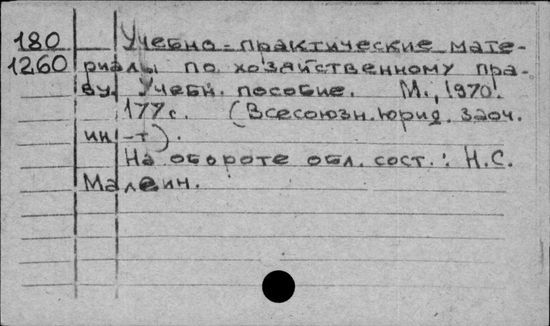 180 Учебно-практические мате-
1260 риалы по хозяйственному пра-
ву. Учебн. пособие. М., 1970.
177с. (Всесоюзн. юрид. заоч.
ин-т).
На обороте обл. сост.: Н.С.
Малеин.